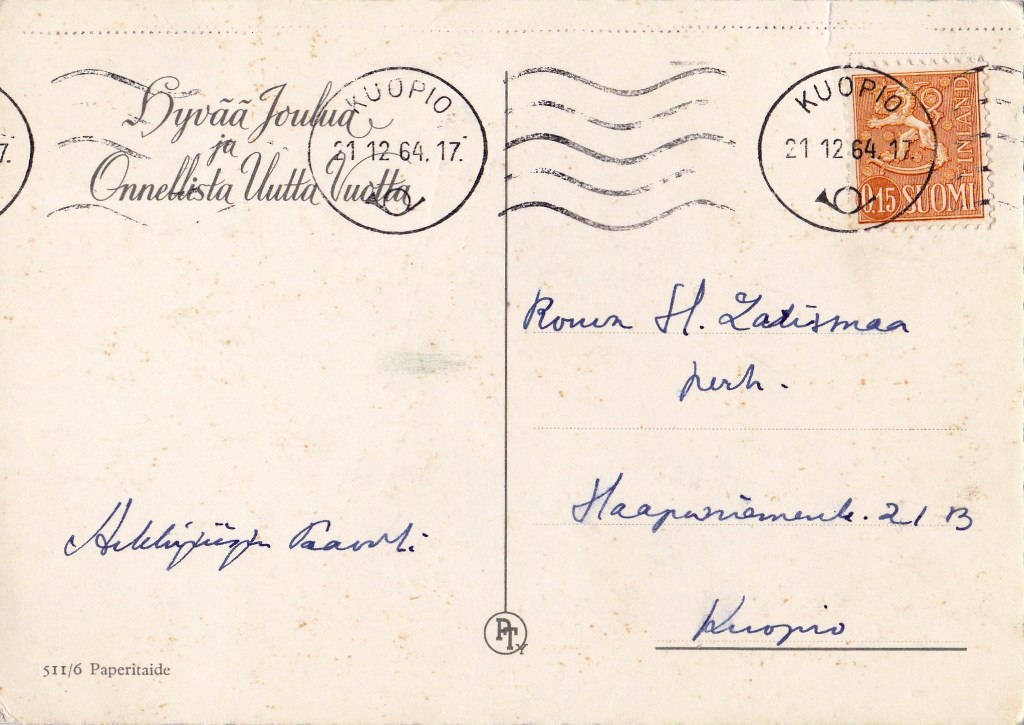 Hyvää Joulua
ja
Onnellista Uutta Vuotta
KUOPIO
21 12 64. 17.
7.
KUOPIO
21 12 64. 17.
FINLAND
0.15 SUOMI
H.
perh.
Haapaniemenk. 21 B
Kuopio
PT
511/6 Paperitaide